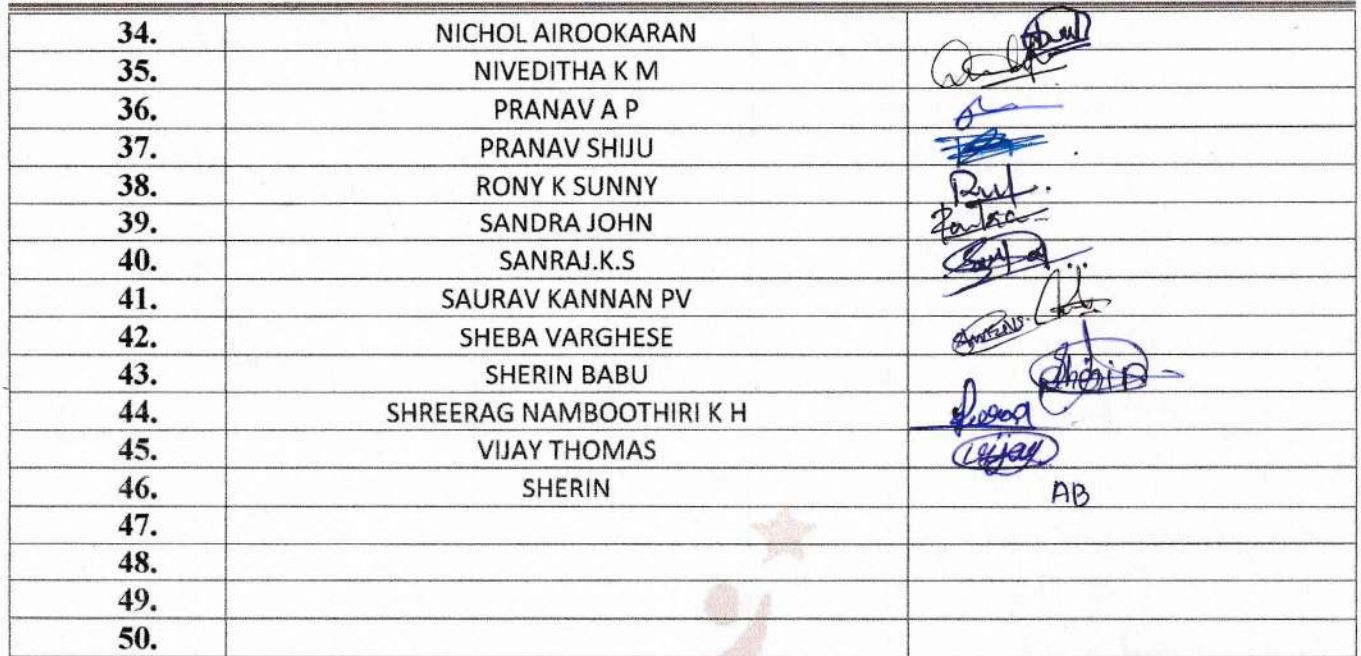 34. NICHOL AIROOKARAN
35. NIVEDITHA K M
36. PRANAV A P
37. PRANAV SHIJU
38. RONY K SUNNY
39. SANDRA JOHN
40. SANRAJ.K.S
41. SAURAV KANNAN PV
42. SHEBA VARGHESE
43. SHERIN BABU Sherin
44. SHREERAG NAMBOOTHIRI K H
45. VIJAY THOMAS vijay
46. SHERIN AB
47.
48.
49.
50.